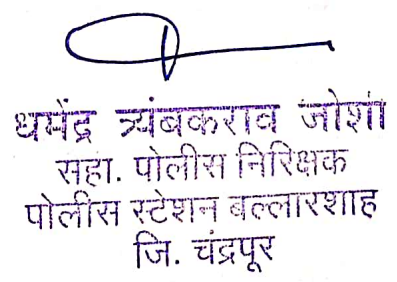 धर्मेंद्र त्र्यंबकराव जोशी
सहा. पोलीस निरिक्षक
पोलीस स्टेशन बल्लारशाह
जि. चंद्रपूर